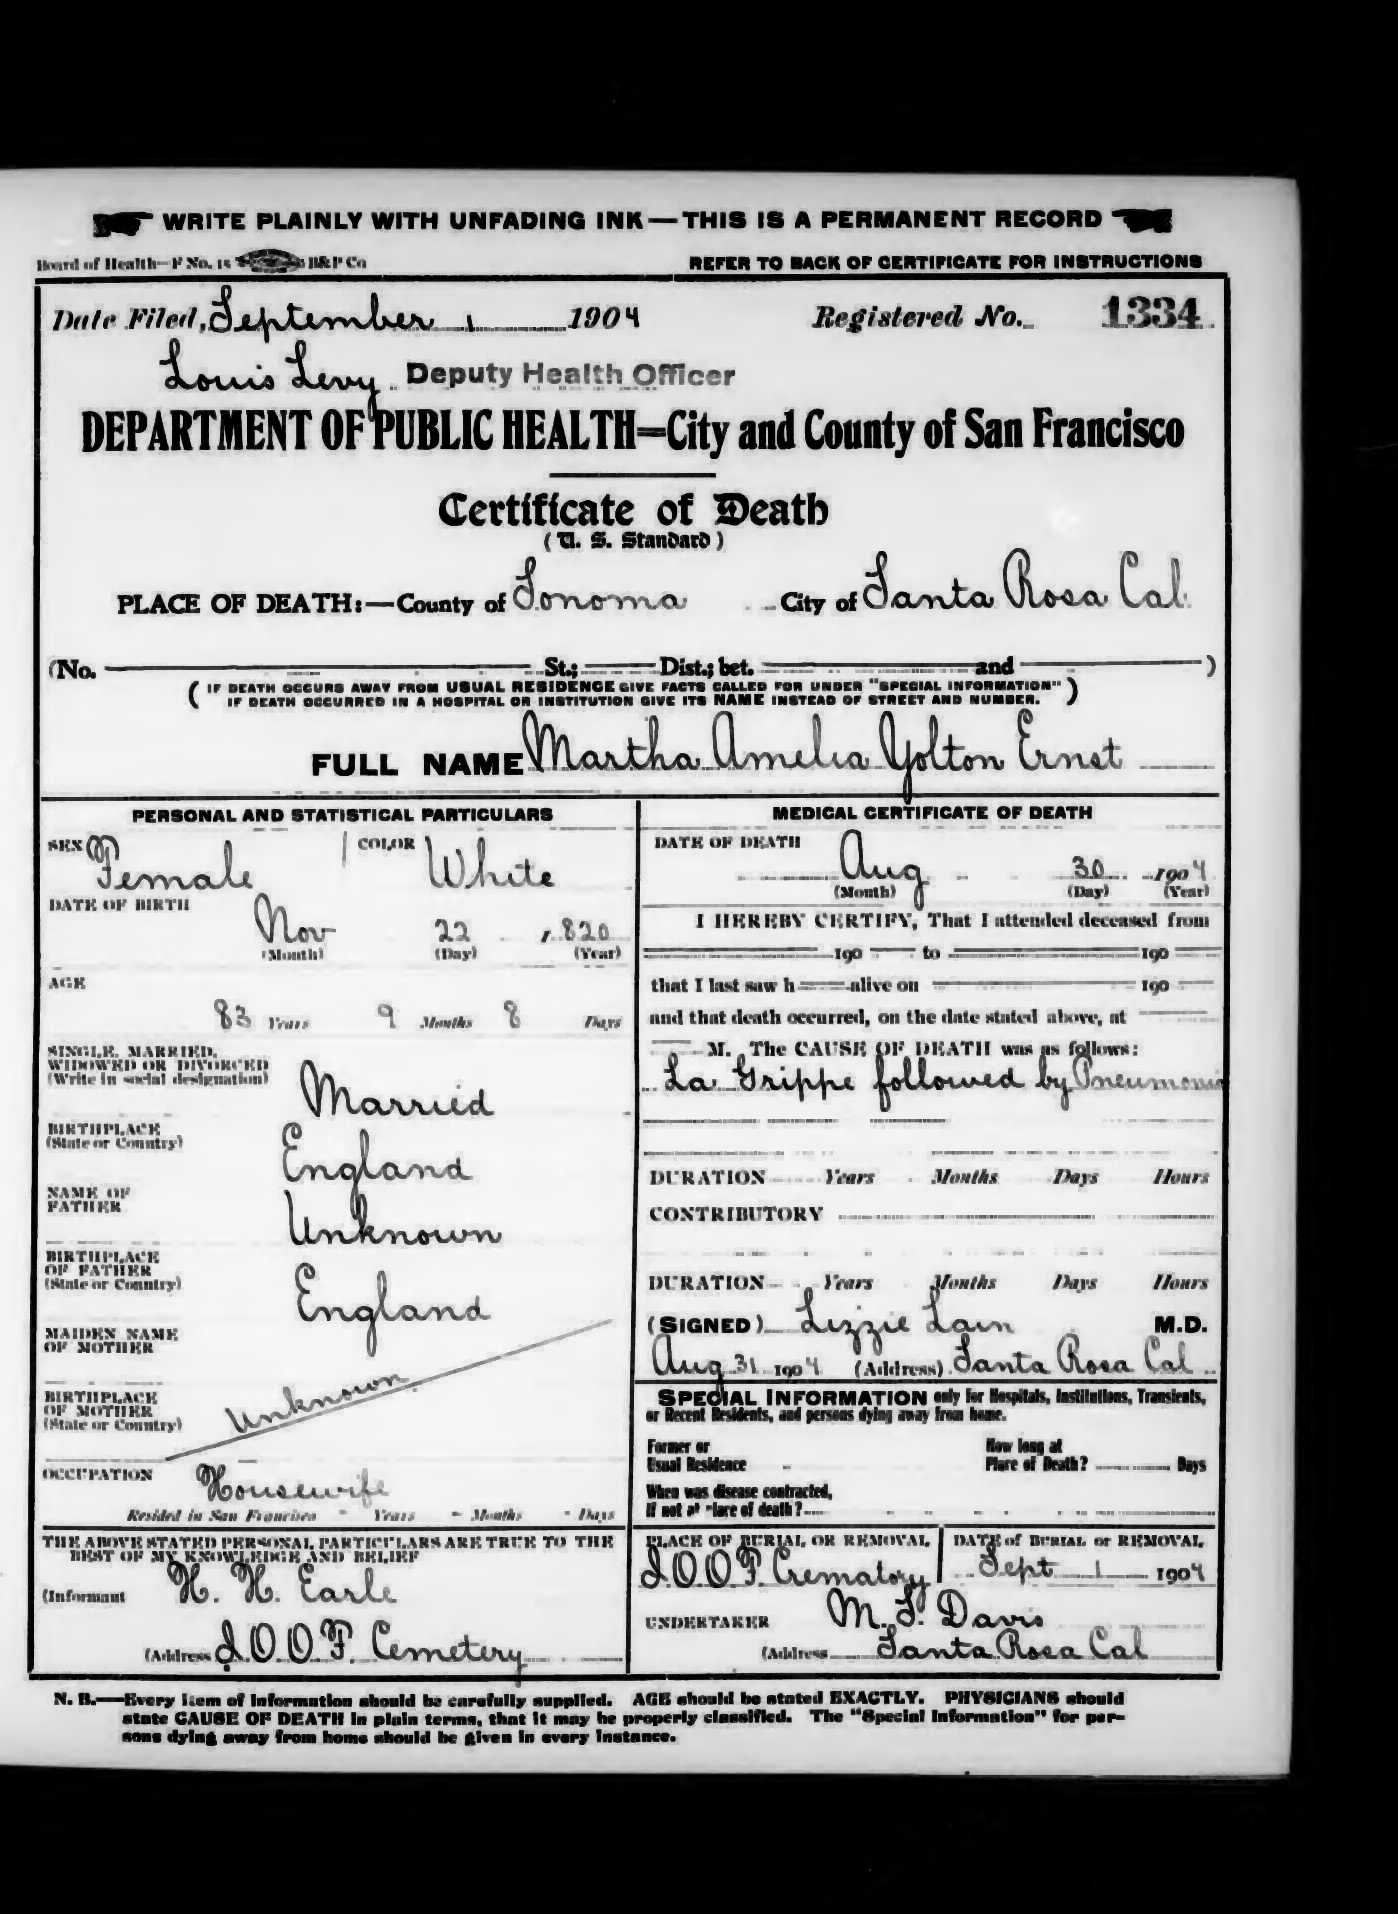 WRITE PLAINLY WITH UNFADING INK—THIS IS A PERMANENT RECORD
Board of Health—F No. 15 B&P Co
REFER TO BACK OF CERTIFICATE FOR INSTRUCTIONS
Date Filed, September 1 1904 Registered No. 1334
Louis Levy Deputy Health Officer
DEPARTMENT OF PUBLIC HEALTH=City and County of San Francisco
Certificate of Death
(U. S. Standard)
PLACE OF DEATH:—County of Sonoma City of Santa Rosa Cal
(No. St.; Dist.; bet. and )
(IF DEATH OCCURS AWAY FROM USUAL RESIDENCE GIVE FACTS CALLED FOR UNDER "SPECIAL INFORMATION"
IF DEATH OCCURRED IN A HOSPITAL OR INSTITUTION GIVE ITS NAME INSTEAD OF STREET AND NUMBER.)
FULL NAME Martha Amelia Yolton Ernst
PERSONAL AND STATISTICAL PARTICULARS
SEX Female COLOR White
DATE OF BIRTH
Nov 22 1820
(Month) (Day) (Year)
AGE
83 Years 9 Months 8 Days
SINGLE, MARRIED,
WIDOWED OR DIVORCED
(Write in social designation) Married
BIRTHPLACE
(State or Country) England
NAME OF
FATHER Unknown
BIRTHPLACE
OF FATHER
(State or Country) England
MAIDEN NAME
OF MOTHER
BIRTHPLACE
OF MOTHER
(State or Country) Unknown
OCCUPATION Housewife
Resided in San Francisco Years Months Days
THE ABOVE STATED PERSONAL PARTICULARS ARE TRUE TO THE
BEST OF MY KNOWLEDGE AND BELIEF
(Informant H. H. Earle
(Address I.O.O.F. Cemetery
MEDICAL CERTIFICATE OF DEATH
DATE OF DEATH
Aug 30 1904
(Month) (Day) (Year)
I HEREBY CERTIFY, That I attended deceased from
190 to 190
that I last saw h alive on 190
and that death occurred, on the date stated above, at
M. The CAUSE OF DEATH was as follows:
La Grippe followed by Pneumonia
DURATION Years Months Days Hours
CONTRIBUTORY
DURATION Years Months Days Hours
(SIGNED) Lizzie Lain M.D.
Aug 31 1904 (Address) Santa Rosa Cal
SPECIAL INFORMATION only for Hospitals, Institutions, Transients,
or Recent Residents, and persons dying away from home.
Former or
Usual Residence
How long at
Place of Death? Days
When was disease contracted,
If not at place of death?
PLACE OF BURIAL OR REMOVAL
I.O.O.F. Crematory
DATE of BURIAL or REMOVAL
Sept 1 1904
UNDERTAKER M. S. Davis
(Address Santa Rosa Cal
N. B.—Every item of information should be carefully supplied. AGE should be stated EXACTLY. PHYSICIANS should
state CAUSE OF DEATH in plain terms, that it may be properly classified. The "Special Information" for per-
sons dying away from home should be given in every instance.